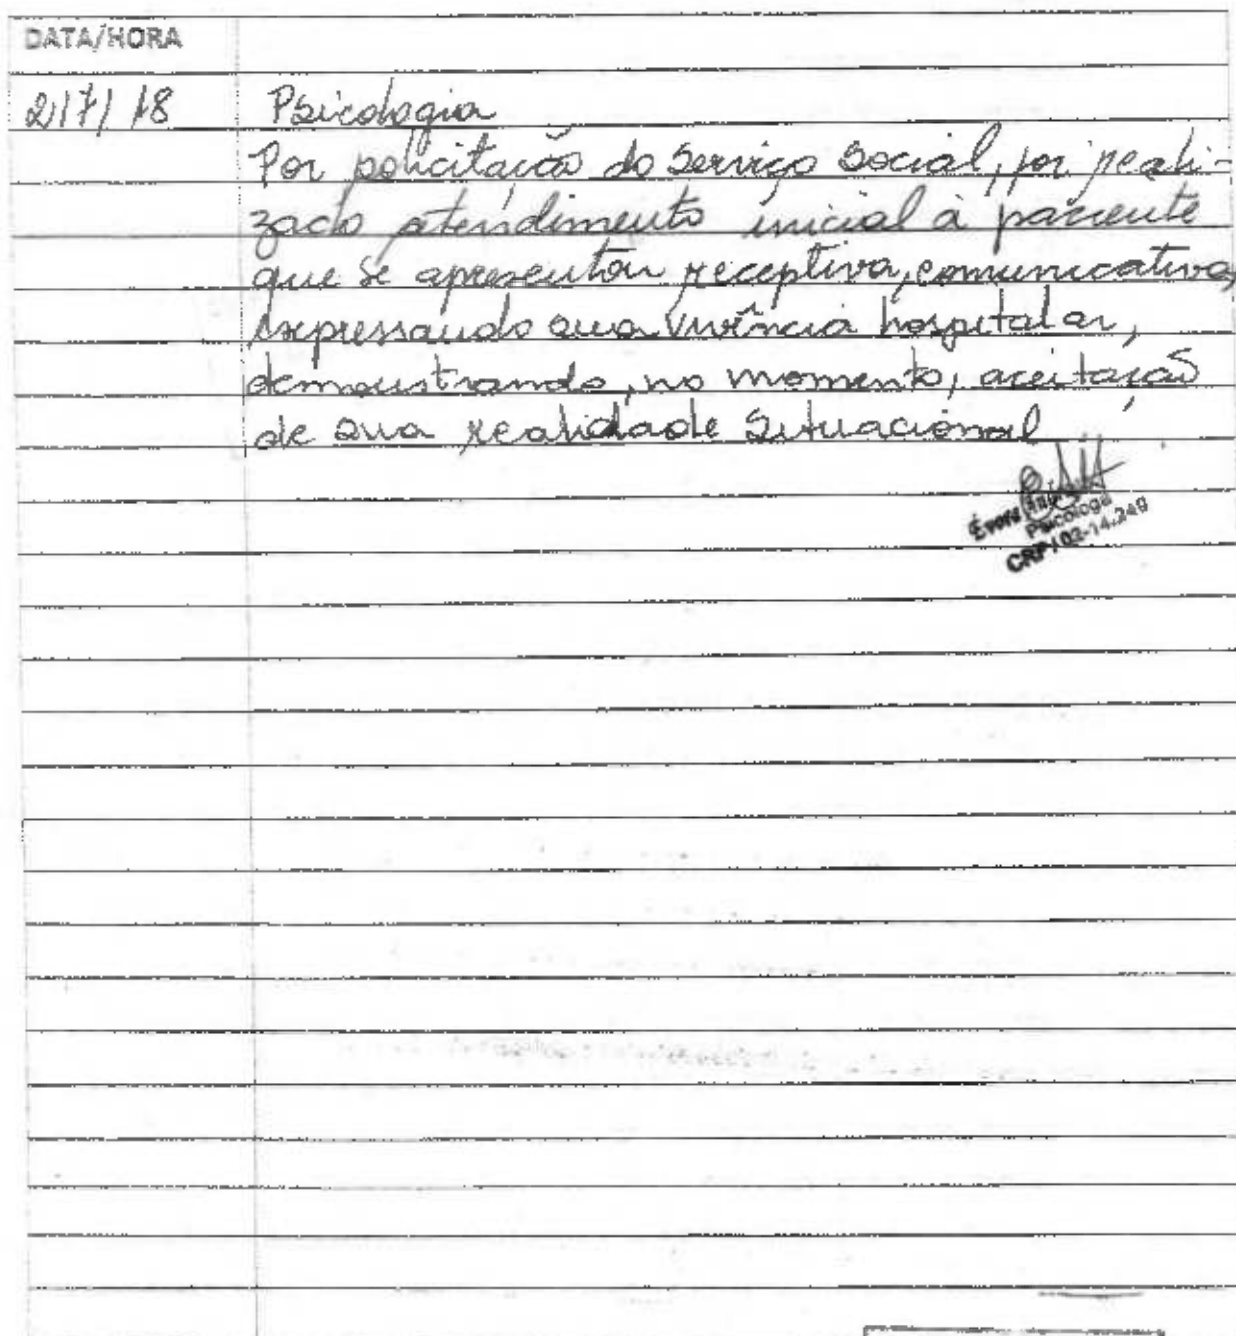 DATA/HORA
2/7/18 Psicologia
Por solicitação do Serviço Social, foi reali-
zado atendimento inicial à paciente
que se apresentou receptiva, comunicativa,
expressando sua vivência hospitalar,
demonstrando, no momento, aceitação
de sua realidade situacional
Psicóloga
CRP/02-14.249